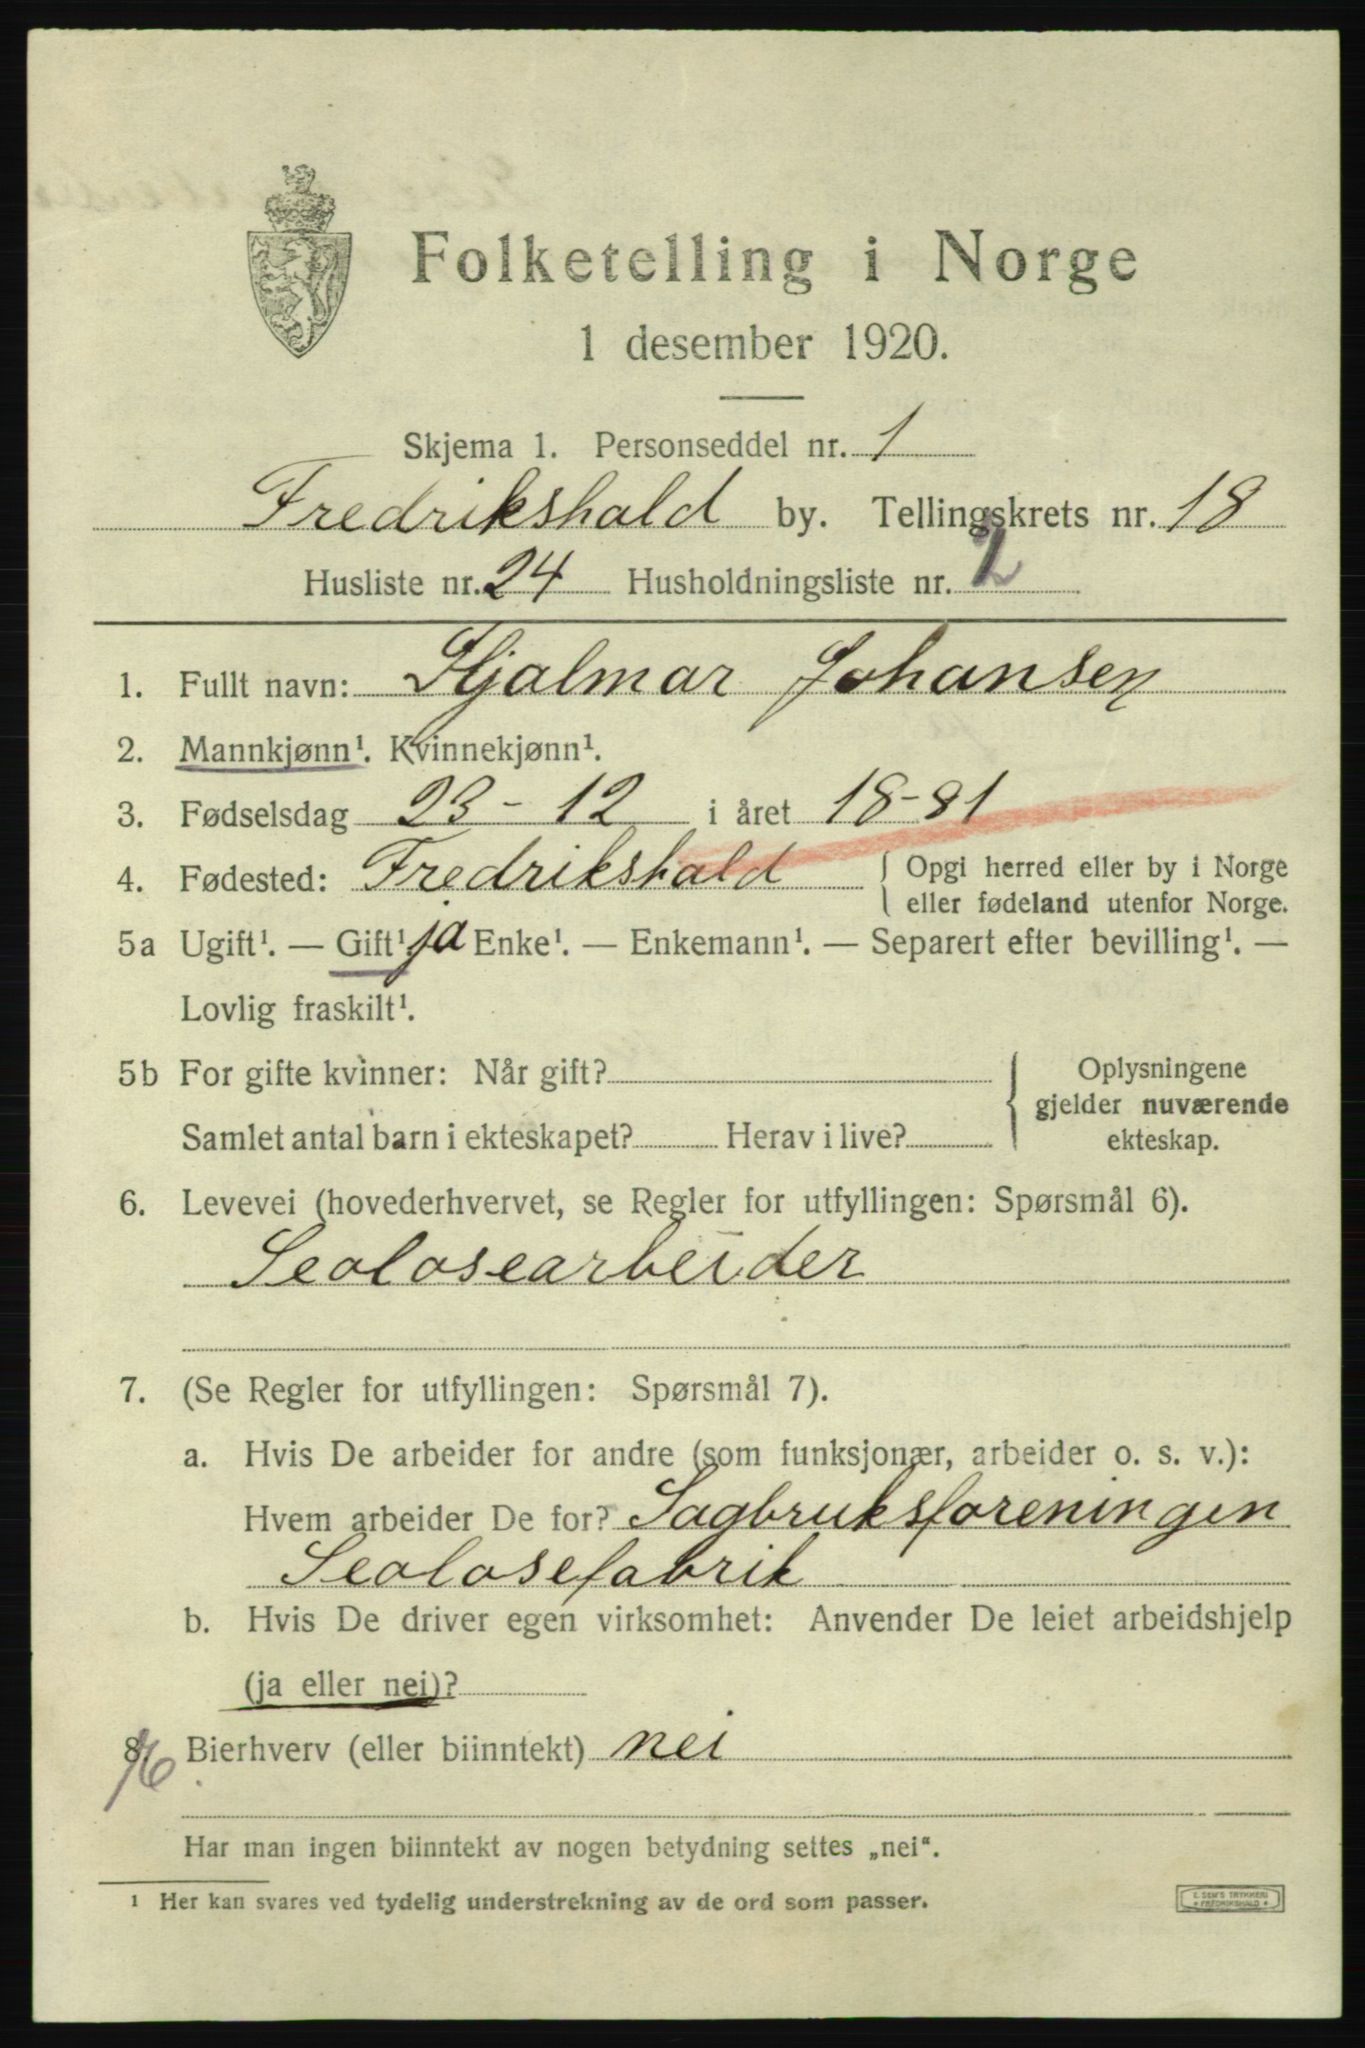 Folketelling i Norge
1 desember 1920.
Skjema 1. Personseddel nr. 1
Fredrikshald by. Tellingskrets nr. 18
Husliste nr. 24 Husholdningsliste nr. 2
1. Fullt navn: Hjalmar Johansen
2. Mannkjønn¹. Kvinnekjønn¹.
3. Fødselsdag 23-12 i året 18-81
4. Fødested: Fredrikshald { Opgi herred eller by i Norge
eller fødeland utenfor Norge.
5a Ugift¹. — Gift¹ ja Enke¹. — Enkemann¹. — Separert efter bevilling¹. —
Lovlig fraskilt¹.
5b For gifte kvinner: Når gift? { Oplysningene
gjelder nuværende
Samlet antal barn i ekteskapet? Herav i live? ekteskap.
6. Levevei (hovederhvervet, se Regler for utfyllingen: Spørsmål 6).
Seolosearbeider
7. (Se Regler for utfyllingen: Spørsmål 7).
a. Hvis De arbeider for andre (som funksjonær, arbeider o. s. v.):
Hvem arbeider De for? Sagbruksforeningen
Seolosefabrik
b. Hvis De driver egen virksomhet: Anvender De leiet arbeidshjelp
(ja eller nei)?
8. Bierhverv (eller biinntekt) nei
Har man ingen biinntekt av nogen betydning settes „nei“.
¹ Her kan svares ved tydelig understrekning av de ord som passer.
E. SEM'S TRYKKERI
* FREDRIKSHALD *